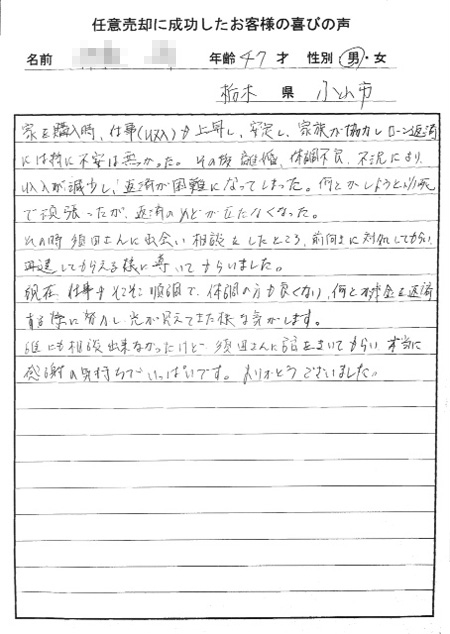 任意売却に成功したお客様の喜びの声
名前 年齢 47 才 性別 男・女
栃木 県 小山市
家を購入時、仕事(収入)も上昇し、安定し、家族が協力しローン返済
には特に不安は無かった。その後離婚、体調不良、不況により、
収入が減少し、返済が困難になってしまった。何とかしようと必死
で頑張ったが、返済のめどが立たなくなった。
その時須田さんに出会い相談をしたところ、前向きに対処してもらい、
再建してもらえる様に導いてもらいました。
現在、仕事もそこそこ順調で、体調の方も良くなり、何とか残金を返済
出来る様に努力し光が見えてきた様な気がします。
誰にも相談出来なかったけど、須田さんに話をきいてもらい、本当に
感謝の気持ちでいっぱいです。ありがとうございました。